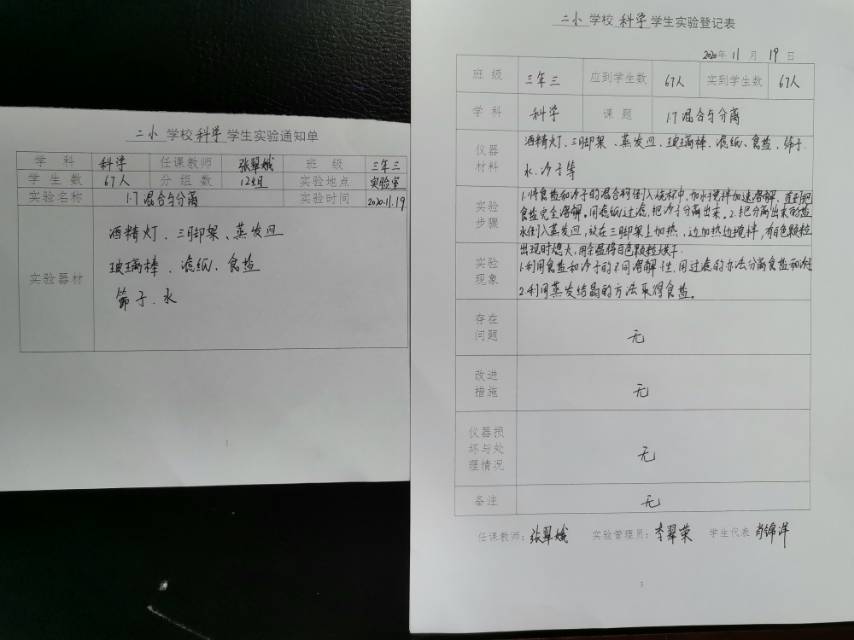 二小学校科学学生实验通知单
学科 科学 任课教师 张翠娥 班级 三年三
学生数 67人 分组数 12组 实验地点 实验室
实验名称 1.7混合与分离 实验时间 2020.11.19
实验器材
酒精灯、三脚架、蒸发皿
玻璃棒、滤纸、食盐
筛子、水
1
二小学校科学学生实验登记表
2020年11月19日
班级 三年三 应到学生数 67人 实到学生数 67人
学科 科学 课题 1.7混合与分离
仪器材料
酒精灯、三脚架、蒸发皿、玻璃棒、滤纸、食盐、筛子
水、沙子等
实验步骤
1.将食盐和沙子的混合物倒入烧杯中,加水搅拌加速溶解、直到把
食盐完全溶解。用滤纸过滤,把沙子分离出来。2.把分离出来的盐
水倒入蒸发皿,放在三脚架上加热,边加热边搅拌,有白色颗粒
出现时熄火,用余温将白色颗粒烘干.
实验现象
1.利用食盐和沙子的不同溶解性,用过滤的办法分离食盐和沙
2.利用蒸发结晶的方法取得食盐。
存在问题 无
改进措施 无
仪器损坏与处理情况 无
备注 无
任课教师:张翠娥 实验管理员:李翠荣 学生代表 肖锦洋
3